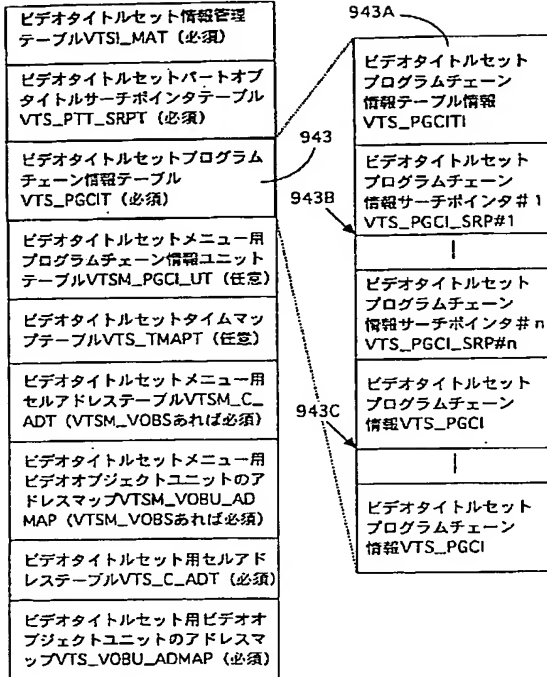 ビデオタイトルセット情報管理
テーブルVTSI_MAT（必須）
ビデオタイトルセットパートオブ
タイトルサーチポインタテーブル
VTS_PTT_SRPT（必須）
ビデオタイトルセットプログラム
チェーン情報テーブル
VTS_PGCIT（必須）
ビデオタイトルセットメニュー用
プログラムチェーン情報ユニット
テーブルVTSM_PGCI_UT（任意）
ビデオタイトルセットタイムマッ
プテーブルVTS_TMAPT（任意）
ビデオタイトルセットメニュー用
セルアドレステーブルVTSM_C_
ADT（VTSM_VOBSあれば必須）
ビデオタイトルセットメニュー用
ビデオオブジェクトユニットのア
ドレスマップVTSM_VOBU_AD
MAP（VTSM_VOBSあれば必須）
ビデオタイトルセット用セルアド
レステーブルVTS_C_ADT（必須）
ビデオタイトルセット用ビデオオ
ブジェクトユニットのアドレスマ
ップVTS_VOBU_ADMAP（必須）
943
943A
ビデオタイトルセット
プログラムチェーン
情報テーブル情報
VTS_PGCITI
943B
ビデオタイトルセット
プログラムチェーン
情報サーチポインタ＃1
VTS_PGCI_SRP#1
ビデオタイトルセット
プログラムチェーン
情報サーチポインタ＃n
VTS_PGCI_SRP#n
943C
ビデオタイトルセット
プログラムチェーン
情報VTS_PGCI
ビデオタイトルセット
プログラムチェーン
情報VTS_PGCI